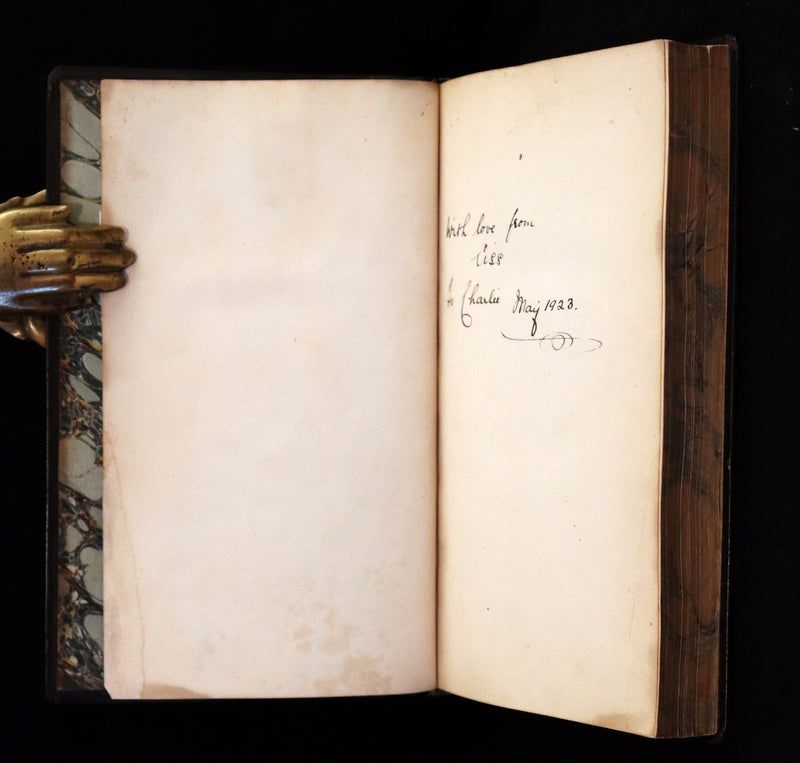 With love from
Liss
to Charlie May 1923.